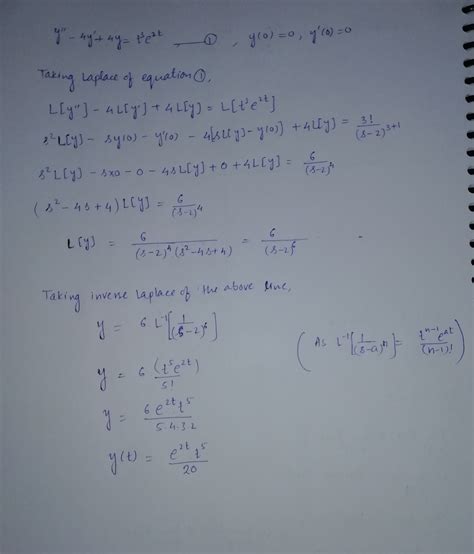 y'' - 4y' + 4y = t³e^{2t} ——① , y(0)=0, y'(0)=0
Taking Laplace of equation ①,
L[y''] - 4L[y'] + 4L[y] = L[t³e^{2t}]
s²L[y] - sy(0) - y'(0) - 4{sL[y] - y(0)} + 4L[y] = 3!/(s-2)^{3+1}
s²L[y] - s×0 - 0 - 4sL[y] + 0 + 4L[y] = 6/(s-2)^4
(s² - 4s + 4) L[y] = 6/(s-2)^4
L[y] = 6/((s-2)^4 (s²-4s+4)) = 6/(s-2)^6
Taking inverse Laplace of the above line,
y = 6 L^{-1}[1/(s-2)^6]
(As L^{-1}[1/(s-a)^n] = t^{n-1}e^{at}/(n-1)!)
y = 6 (t^5e^{2t})/5!
y = 6e^{2t}t^5/5.4.3.2
y(t) = e^{2t}t^5/20